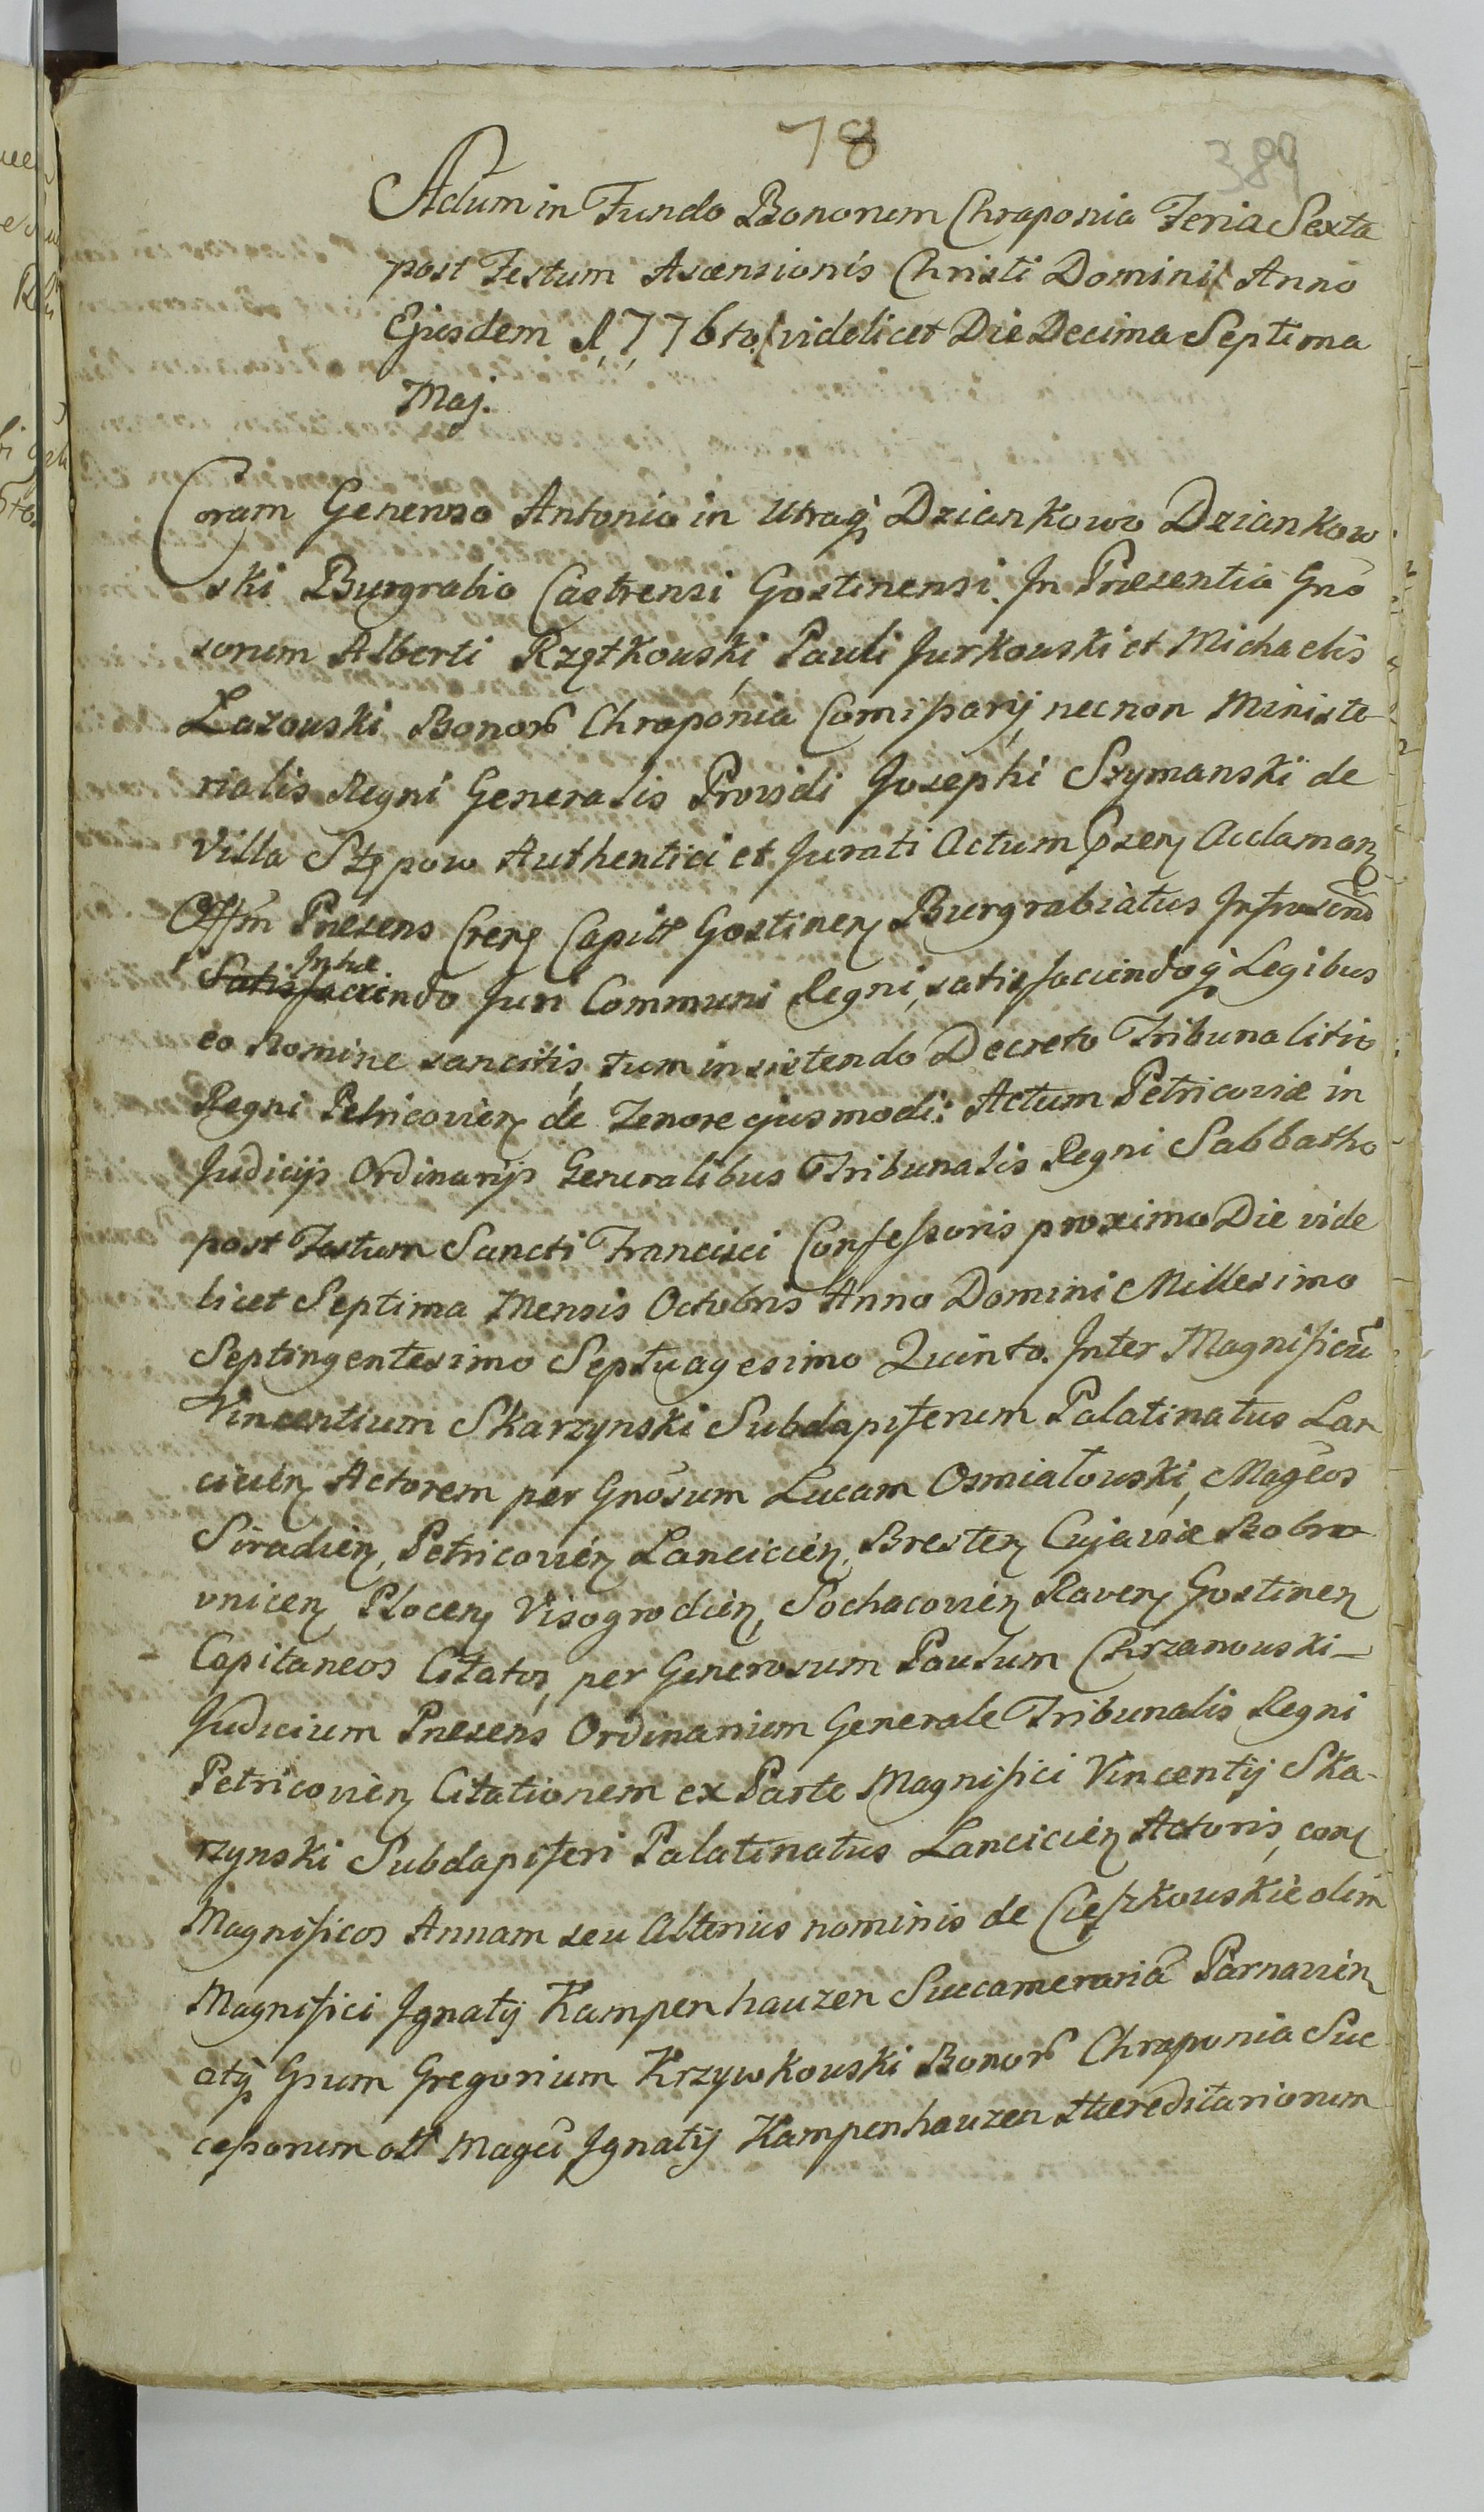 78
389
Actum in Fundo Bonorum Chraponia Feria Sexta
post Festum Ascensionis Christi Domini Anno
Ejusdem 1,7,76to videlicet Die Decima Septima
Maj.
Coram Generoso Antonio in Utraq Dziankowo Dziankow
ski Burgrabio Castrensi Gostinensi. In Presentia Gnō
sorum Alberti Rzętkouski, Pauli Jurkouski et Michaelis
Lazouski Bonor Chraponia Comissarij, necnon Ministe
rialis Regni Generalis Providi Josephi Szymanski de
Villa Stępow Authentici et Jurati Actum Prnz Acclaman
Offm Presens Cren Capitt Gostinen Burgrabiatus
Satisfaciendo Inhæ Juri Communi Regni, satisfaciendoq Legibus
eo Nomine sancitis, tum insistendo Decreto Tribunalitio
Regni Petricovien de Tenore ejusmodi: Actum Petricoviæ in
Judicijs Ordinarijs Generalibus Tribunalis Regni Sabbatho
post Festum Sancti Francisci Confessoris proximo Die vide
licet Septima Mensis Octobris Anno Domini Millesimo
Septingentesimo Septuagesimo Quinto. Inter Magnificū
Vincentium Skarzynski Subdapiferum Palatinatus Lan
cicien Actorem per Gnōsum Lucam Osmiałouski, Magcos
Siradien, Petricovien Lancicien, Bresten Cujaviæ Bobro
vnicen Plocen Visogrodien, Sochacovien Raven Gostinen
Capitaneos Citatos, per Generosum Paulum Chrzanouski
Judicium Presens Ordinarium Generale Tribunalis Regni
Petricovien Citationem ex Parte Magnifici Vincentij Ska-
rzynski Subdapiferi Palatinatus Lancicien Actoris, con
Magnificos Annam seu Alterius nominis de Cieszkouskie olim
Magnifici Ignatij Kampenhauzen Succamerariā Parnavien
atq Gsum Gregorium Krzywkouski Bonor Chraponia Suc
cessorum ott Magci Ignatij Kampenhauzen Hæreditariorum